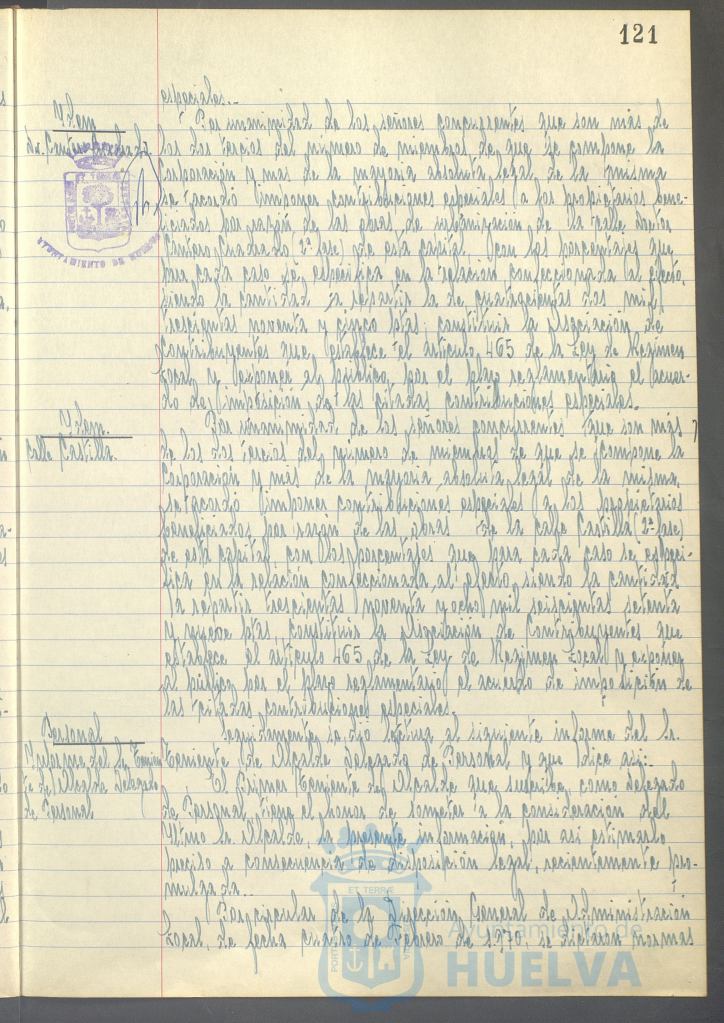 121
especiales.-
Item
Dr. Cantero Cuadrado
Por unanimidad de los señores concurrentes que son más de
los dos tercios del número de miembros de que se compone la
Corporación y mas de la mayoria absoluta legal de la misma
se acordó imponer contribuciones especiales a los propietarios bene-
ficiados por razón de las obras de urbanización de la calle Doctor
Cantero Cuadrado (2ª fase) de esta capital, con los porcentajes que
para cada caso se especifica en la relación confeccionada al efecto,
siendo la cantidad a repartir la de cuatrocientas dos mil
trescientas noventa y cinco ptas; constituir la Asociación de
Contribuyentes que establece el artículo 465 de la Ley de Regimen
Local y exponer al público, por el plazo reglamentario el acuer-
do de imposición de las citadas contribuciones especiales.
Item.
Calle Castilla.
Por unanimidad de los señores concurrentes que son más
de los dos tercios del número de miembros de que se compone la
Corporación y mas de la mayoria absoluta legal de la misma,
se acordó imponer contribuciones especiales a los propietarios
beneficiados por razón de las obras de la calle Castilla (2ª fase)
de esta capital, con los porcentajes que para cada caso se especi-
fica en la relación confeccionada al efecto siendo la cantidad
a repartir trescientas noventa y ocho mil seiscientas setenta
y nueve ptas, constituir la Asociación de Contribuyentes que
establece el artículo 465 de la Ley de Regimen Local y exponer
al público por el plazo reglamentario el acuerdo de imposición de
las citadas contribuciones especiales.
Personal
Informe del Sr. Tenien-
te de Alcalde Delegado
de Personal
Seguidamente se dio lectura al siguiente informe del Sr.
Teniente de Alcalde Delegado de Personal y que dice asi:-
El Primer Teniente de Alcalde que suscribe, como Delegado
de Personal, tiene el honor de someter a la consideración del
Iltmo Sr. Alcalde, la presente información, por asi estimarlo
preciso a consecuencia de disposición legal, recientemente pro-
mulgada.-
Por circular de la Dirección General de Administración
Local, de fecha cuatro de Febrero de 1.970, se dictaron normas
AYUNTAMIENTO DE HUELVA
PORTUS
ET TERRAE
Ayuntamiento de
HUELVA